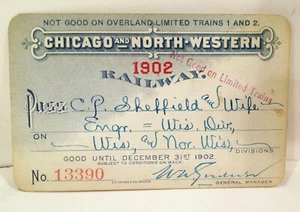 NOT GOOD ON OVERLAND LIMITED TRAINS 1 AND 2.
CHICAGO AND NORTH-WESTERN
Not Good on Limited Trains
1902
RAILWAY.
Pass C. P. Sheffield & Wife
Engr. = Wis. Div,
ON Wis, and Nor. Wis, DIVISIONS
GOOD UNTIL DECEMBER 31ST 1902.
SUBJECT TO CONDITIONS ON BACK.
No. 13390
GENERAL MANAGER